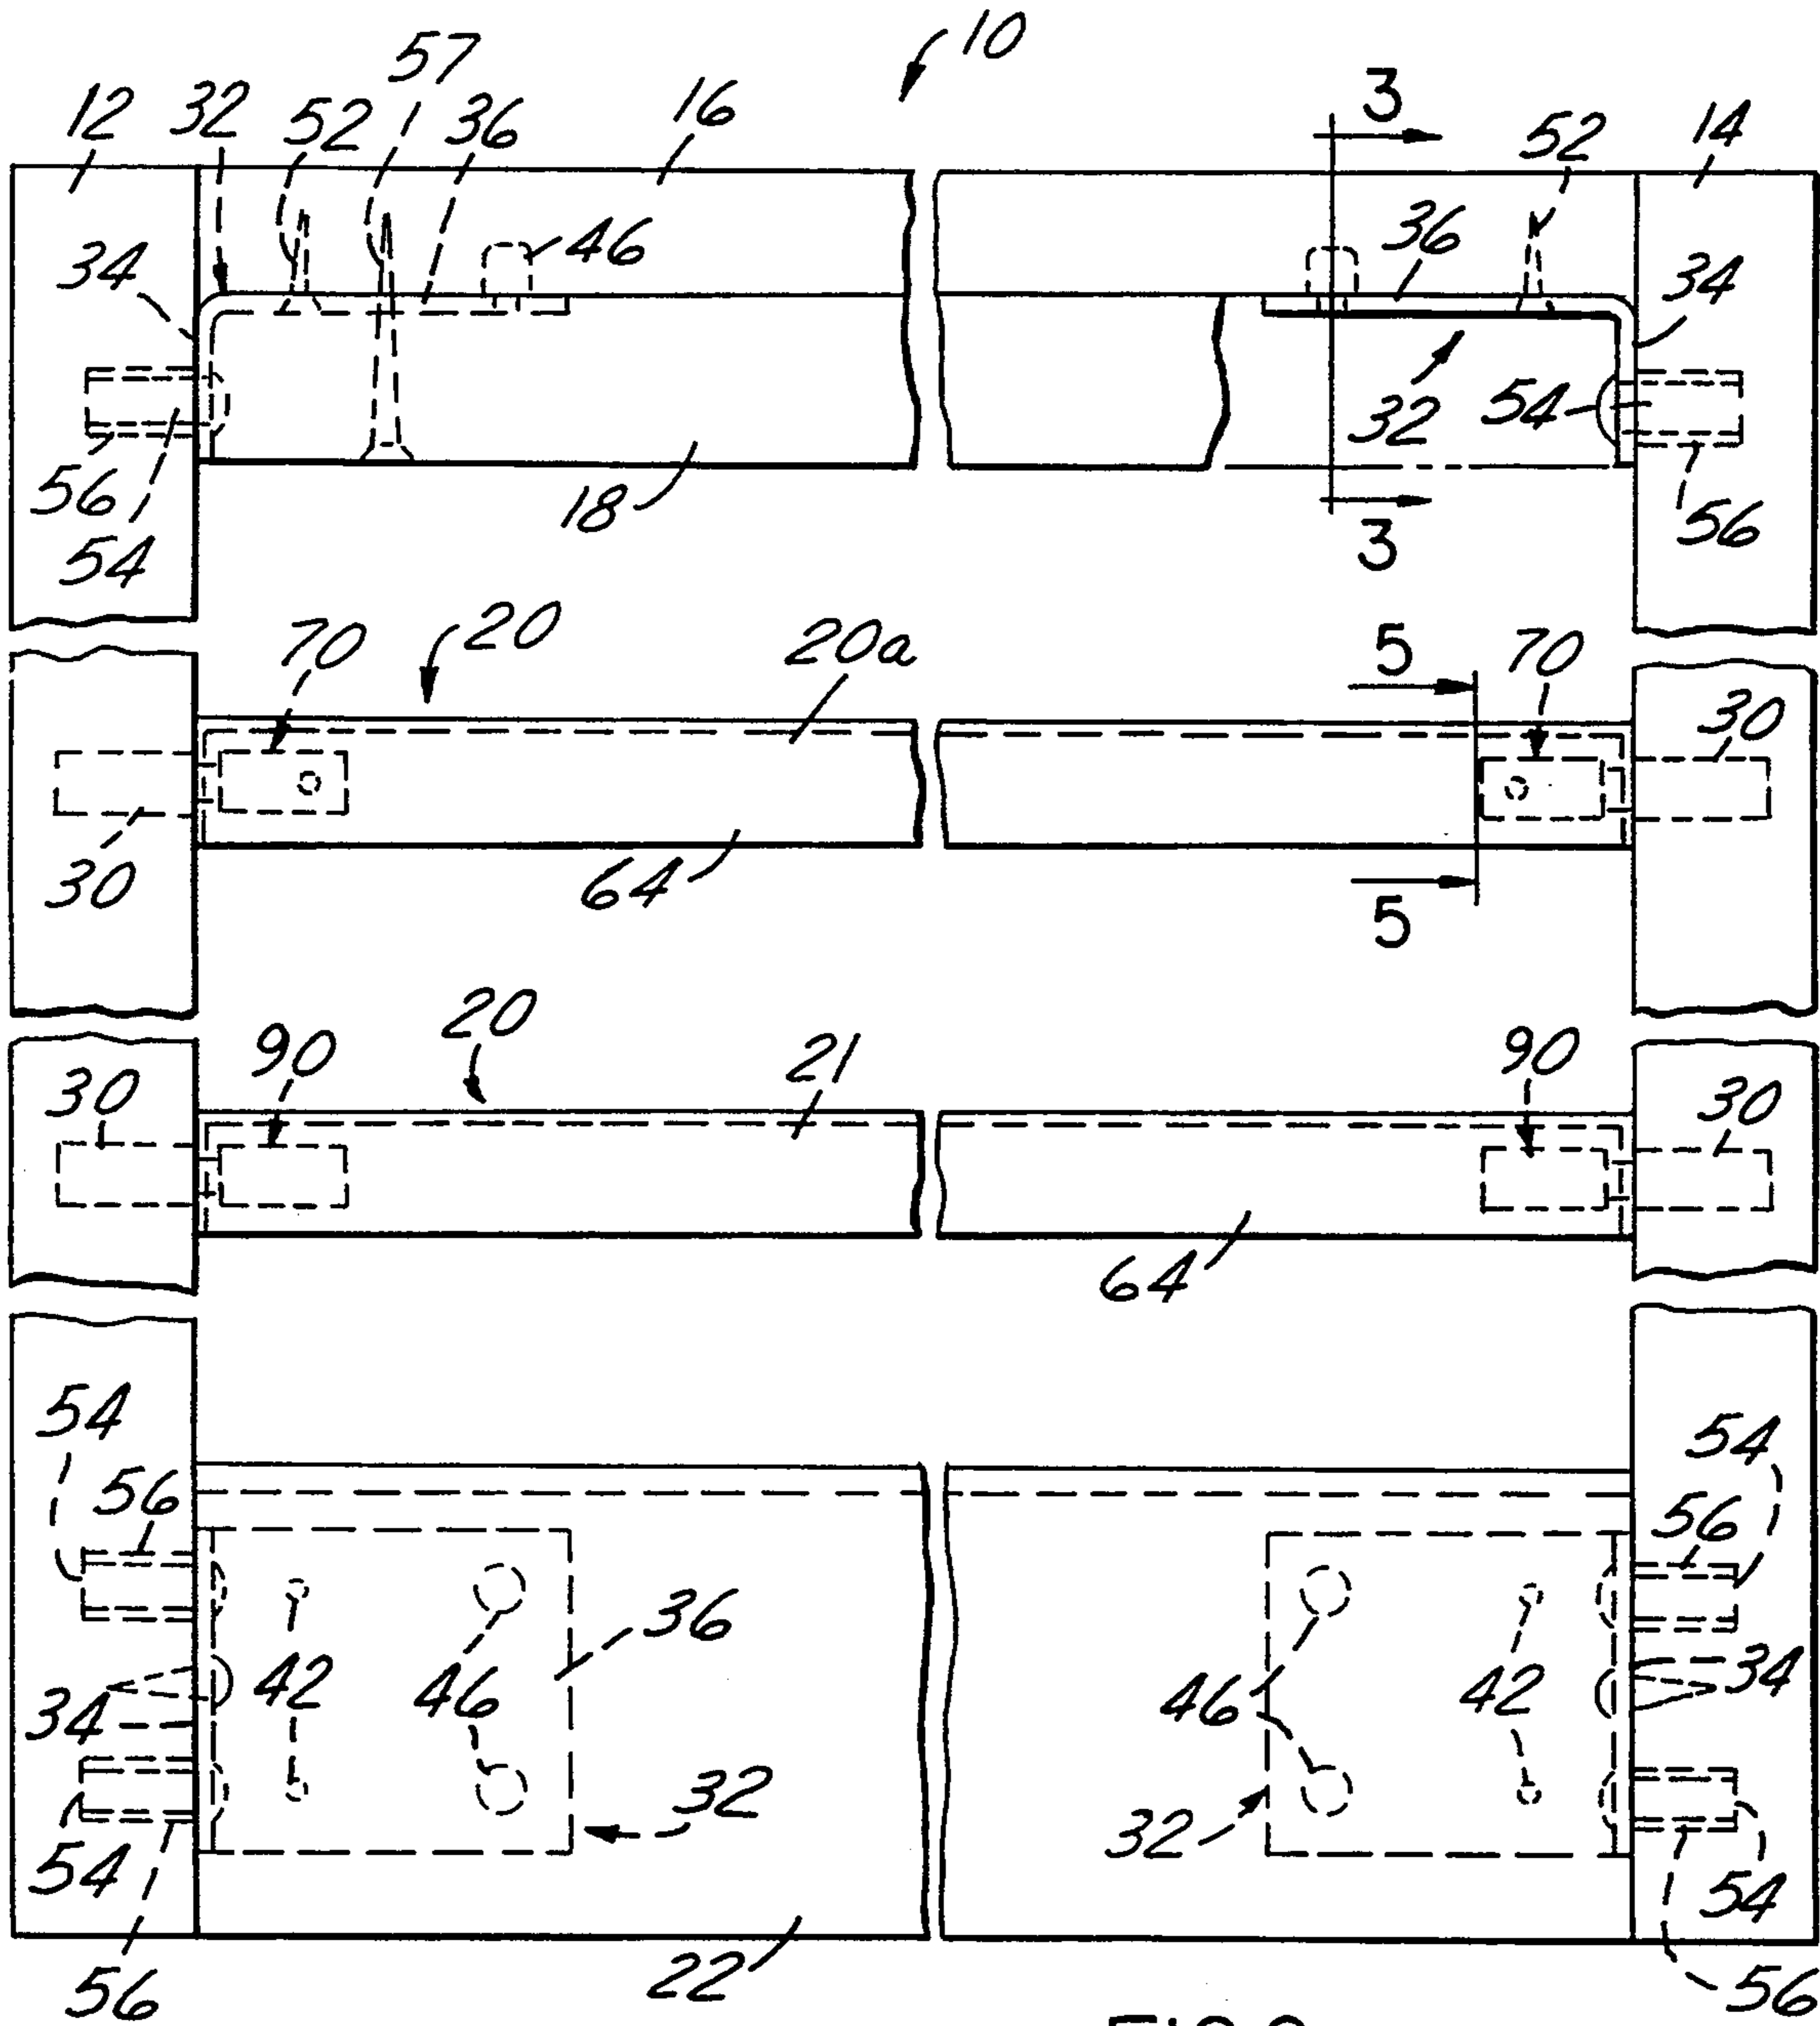 10
57
12
32
52
36
16
3
52
14
34
46
36
34
32
54
56
54
18
3
56
20
70
20a
5
70
30
30
64
5
20
90
21
90
30
30
64
54
56
54
56
36
34
42
46
46
42
34
32
32
54
54
56
22
56